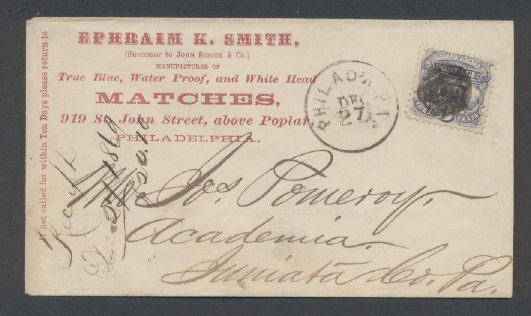 EPHRAIM K. SMITH,
(Successor to JOHN SCHICK & Co.)
MANUFACTURER OF
True Blue, Water Proof, and White Head
MATCHES,
919 St. John Street, above Poplar,
PHILADELPHIA.
If not called for within Ten Days please return to
PHILAD'A PA.
DEC
27
Jos Pomeroy.
Academia.
Juniata Co. Pa.
Rec'd
1869